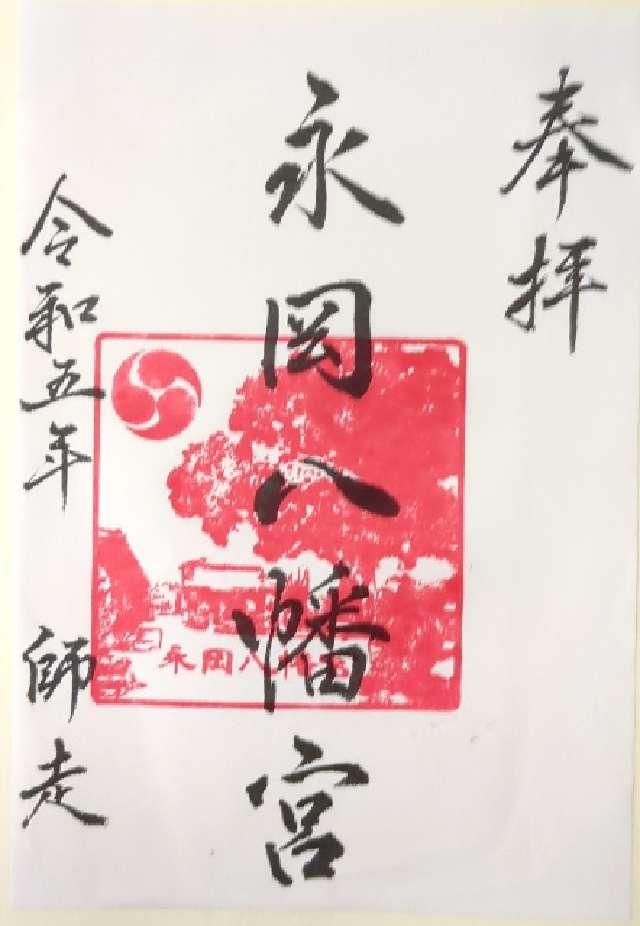 奉拝
永岡八幡宮
永岡八幡宮
令和五年 師走